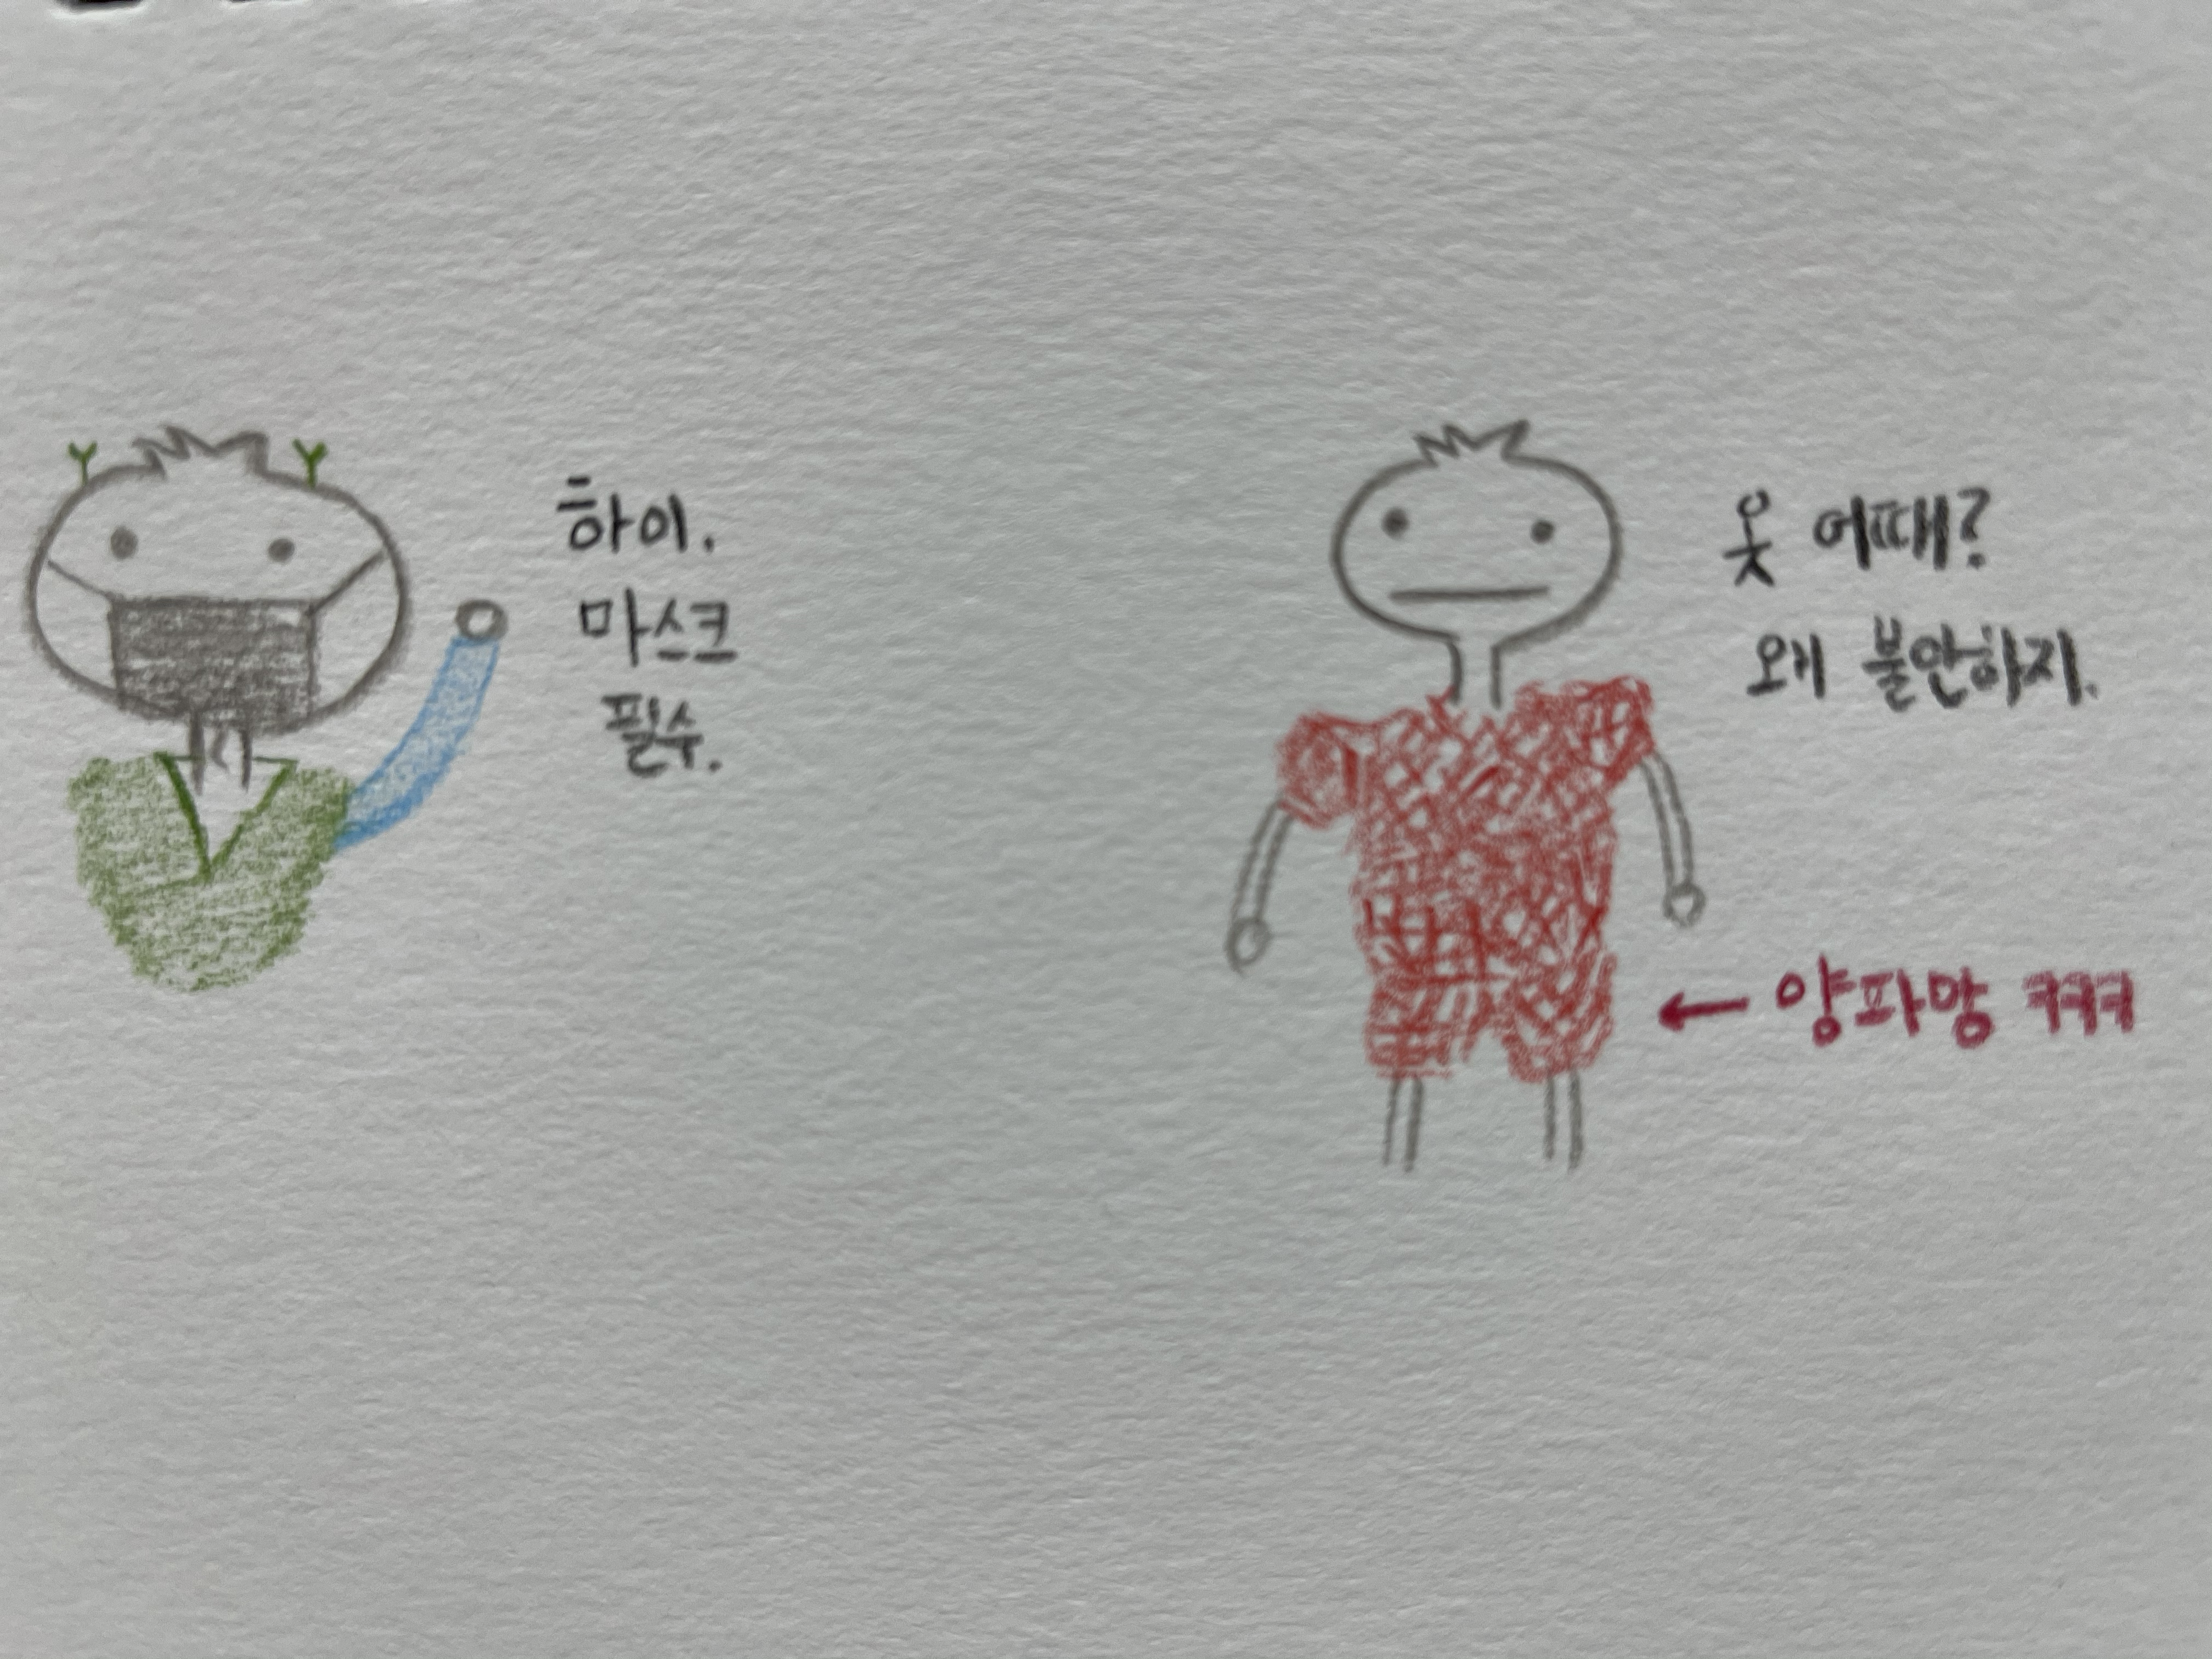 하이.
마스크
필수.
옷 어때?
왜 불안하지.
← 양파망 ㅋㅋㅋ